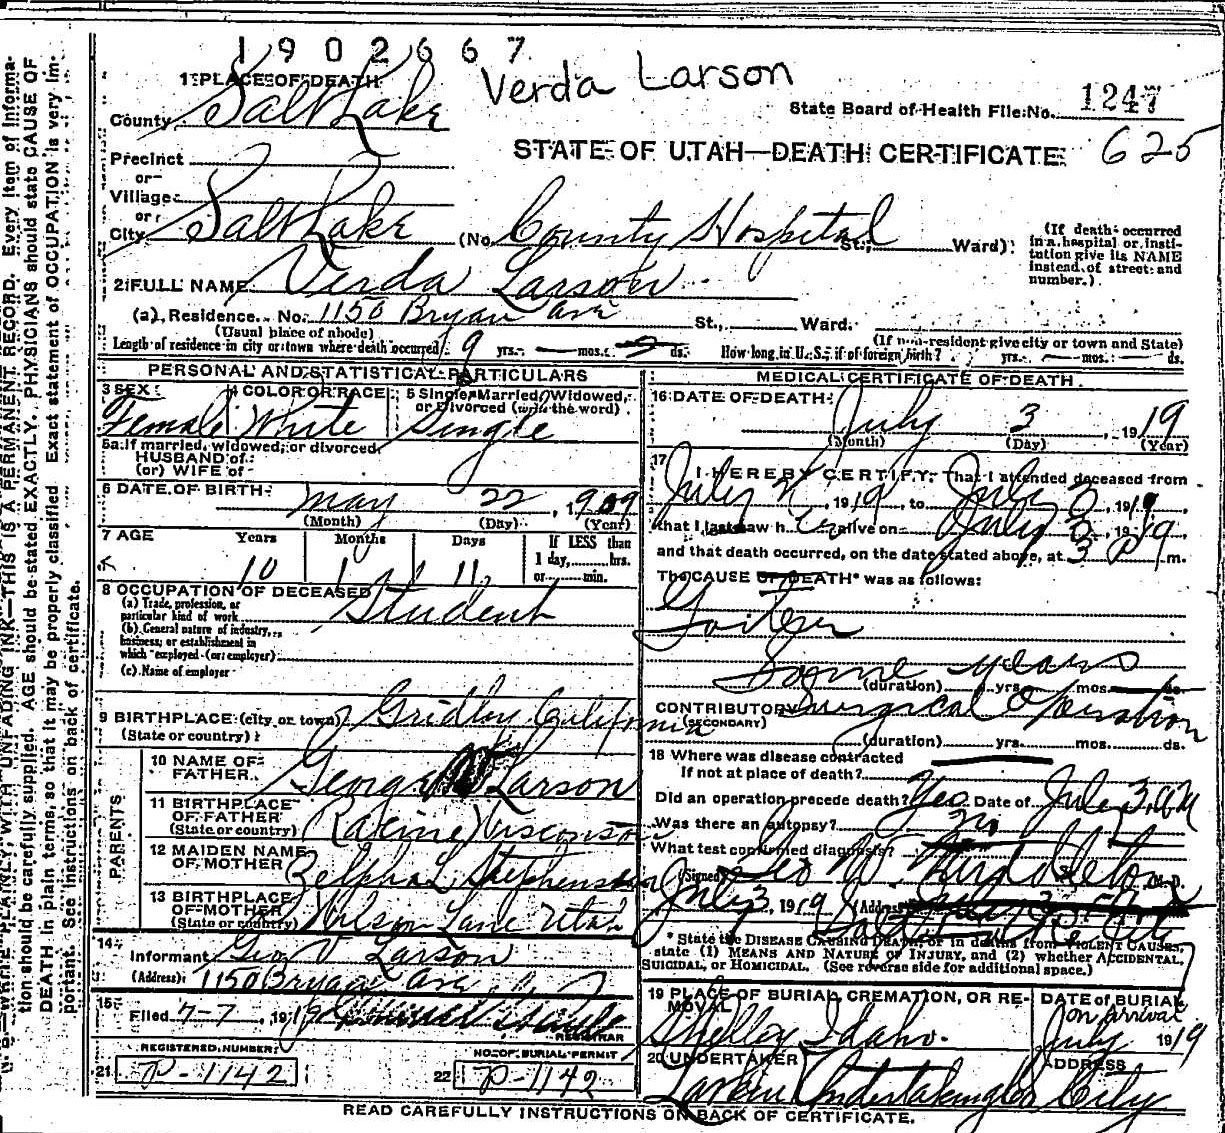 1902667
Verda Larson
1 PLACE OF DEATH
State Board of Health File No. 1247
County Salt Lake
STATE OF UTAH—DEATH CERTIFICATE 625
Precinct
or
Village
or
City Salt Lake (No. County Hospital St.; Ward)
(If death occurred in a hospital or institution give its NAME instead of street and number.)
2 FULL NAME Verda Larson
(a) Residence. No. 1150 Bryan Ave St., Ward.
(Usual place of abode) (If non-resident give city or town and State)
Length of residence in city or town where death occurred 9 yrs. — mos. ds. How long in U. S., if of foreign birth? yrs. — mos. ds.
PERSONAL AND STATISTICAL PARTICULARS
3 SEX 4 COLOR OR RACE 5 Single, Married, Widowed, or Divorced (write the word)
Female White Single
5a If married, widowed, or divorced
HUSBAND of
(or) WIFE of
6 DATE OF BIRTH May 22, 1909
(Month) (Day) (Year)
7 AGE Years Months Days If LESS than 1 day, hrs. or min.
10 1 11
8 OCCUPATION OF DECEASED
(a) Trade, profession, or particular kind of work Student
(b) General nature of industry, business, or establishment in which employed (or employer)
(c) Name of employer
9 BIRTHPLACE (city or town) Gridley California
(State or country)
PARENTS
10 NAME OF FATHER George Larson
11 BIRTHPLACE OF FATHER (State or country) Racine Wisconsin
12 MAIDEN NAME OF MOTHER Zelpha L Stephenson
13 BIRTHPLACE OF MOTHER (State or country) Wilson Lane Utah
14 Informant Geo V Larson
(Address) 1150 Bryan Ave
15 Filed 7-7, 1919
REGISTRAR
REGISTERED NUMBER NO. OF BURIAL PERMIT
21 P-1142 22 P-1142
MEDICAL CERTIFICATE OF DEATH
16 DATE OF DEATH July 3, 1919
(Month) (Day) (Year)
17 I HEREBY CERTIFY, That I attended deceased from
July 2, 1919, to July 3, 1919
that I last saw her alive on July 3, 1919
and that death occurred, on the date stated above, at 3 P m.
The CAUSE OF DEATH* was as follows:
Goiter
Some years
(duration) yrs. mos. ds.
CONTRIBUTORY Surgical Operation
(SECONDARY)
(duration) yrs. mos. ds.
18 Where was disease contracted
If not at place of death?
Did an operation precede death? Yes Date of July 3,
Was there an autopsy? no
What test confirmed diagnosis?
(Signed) Geo W. Middleton M. D.
July 3, 1919 (Address) Salt Lake City
* State the DISEASE CAUSING DEATH, or in deaths from VIOLENT CAUSES,
state (1) MEANS AND NATURE OF INJURY, and (2) whether ACCIDENTAL,
SUICIDAL, or HOMICIDAL. (See reverse side for additional space.)
19 PLACE OF BURIAL, CREMATION, OR REMOVAL DATE of BURIAL
on arrival
Shelley Idaho. July 1919
20 UNDERTAKER ADDRESS
Larkin Undertaking Co City
READ CAREFULLY INSTRUCTIONS ON BACK OF CERTIFICATE.
WRITE PLAINLY, WITH UNFADING INK—THIS IS A PERMANENT RECORD. Every item of information should be carefully supplied. AGE should be stated EXACTLY. PHYSICIANS should state CAUSE OF DEATH in plain terms, so that it may be properly classified. Exact statement of OCCUPATION is very important. See instructions on back of certificate.